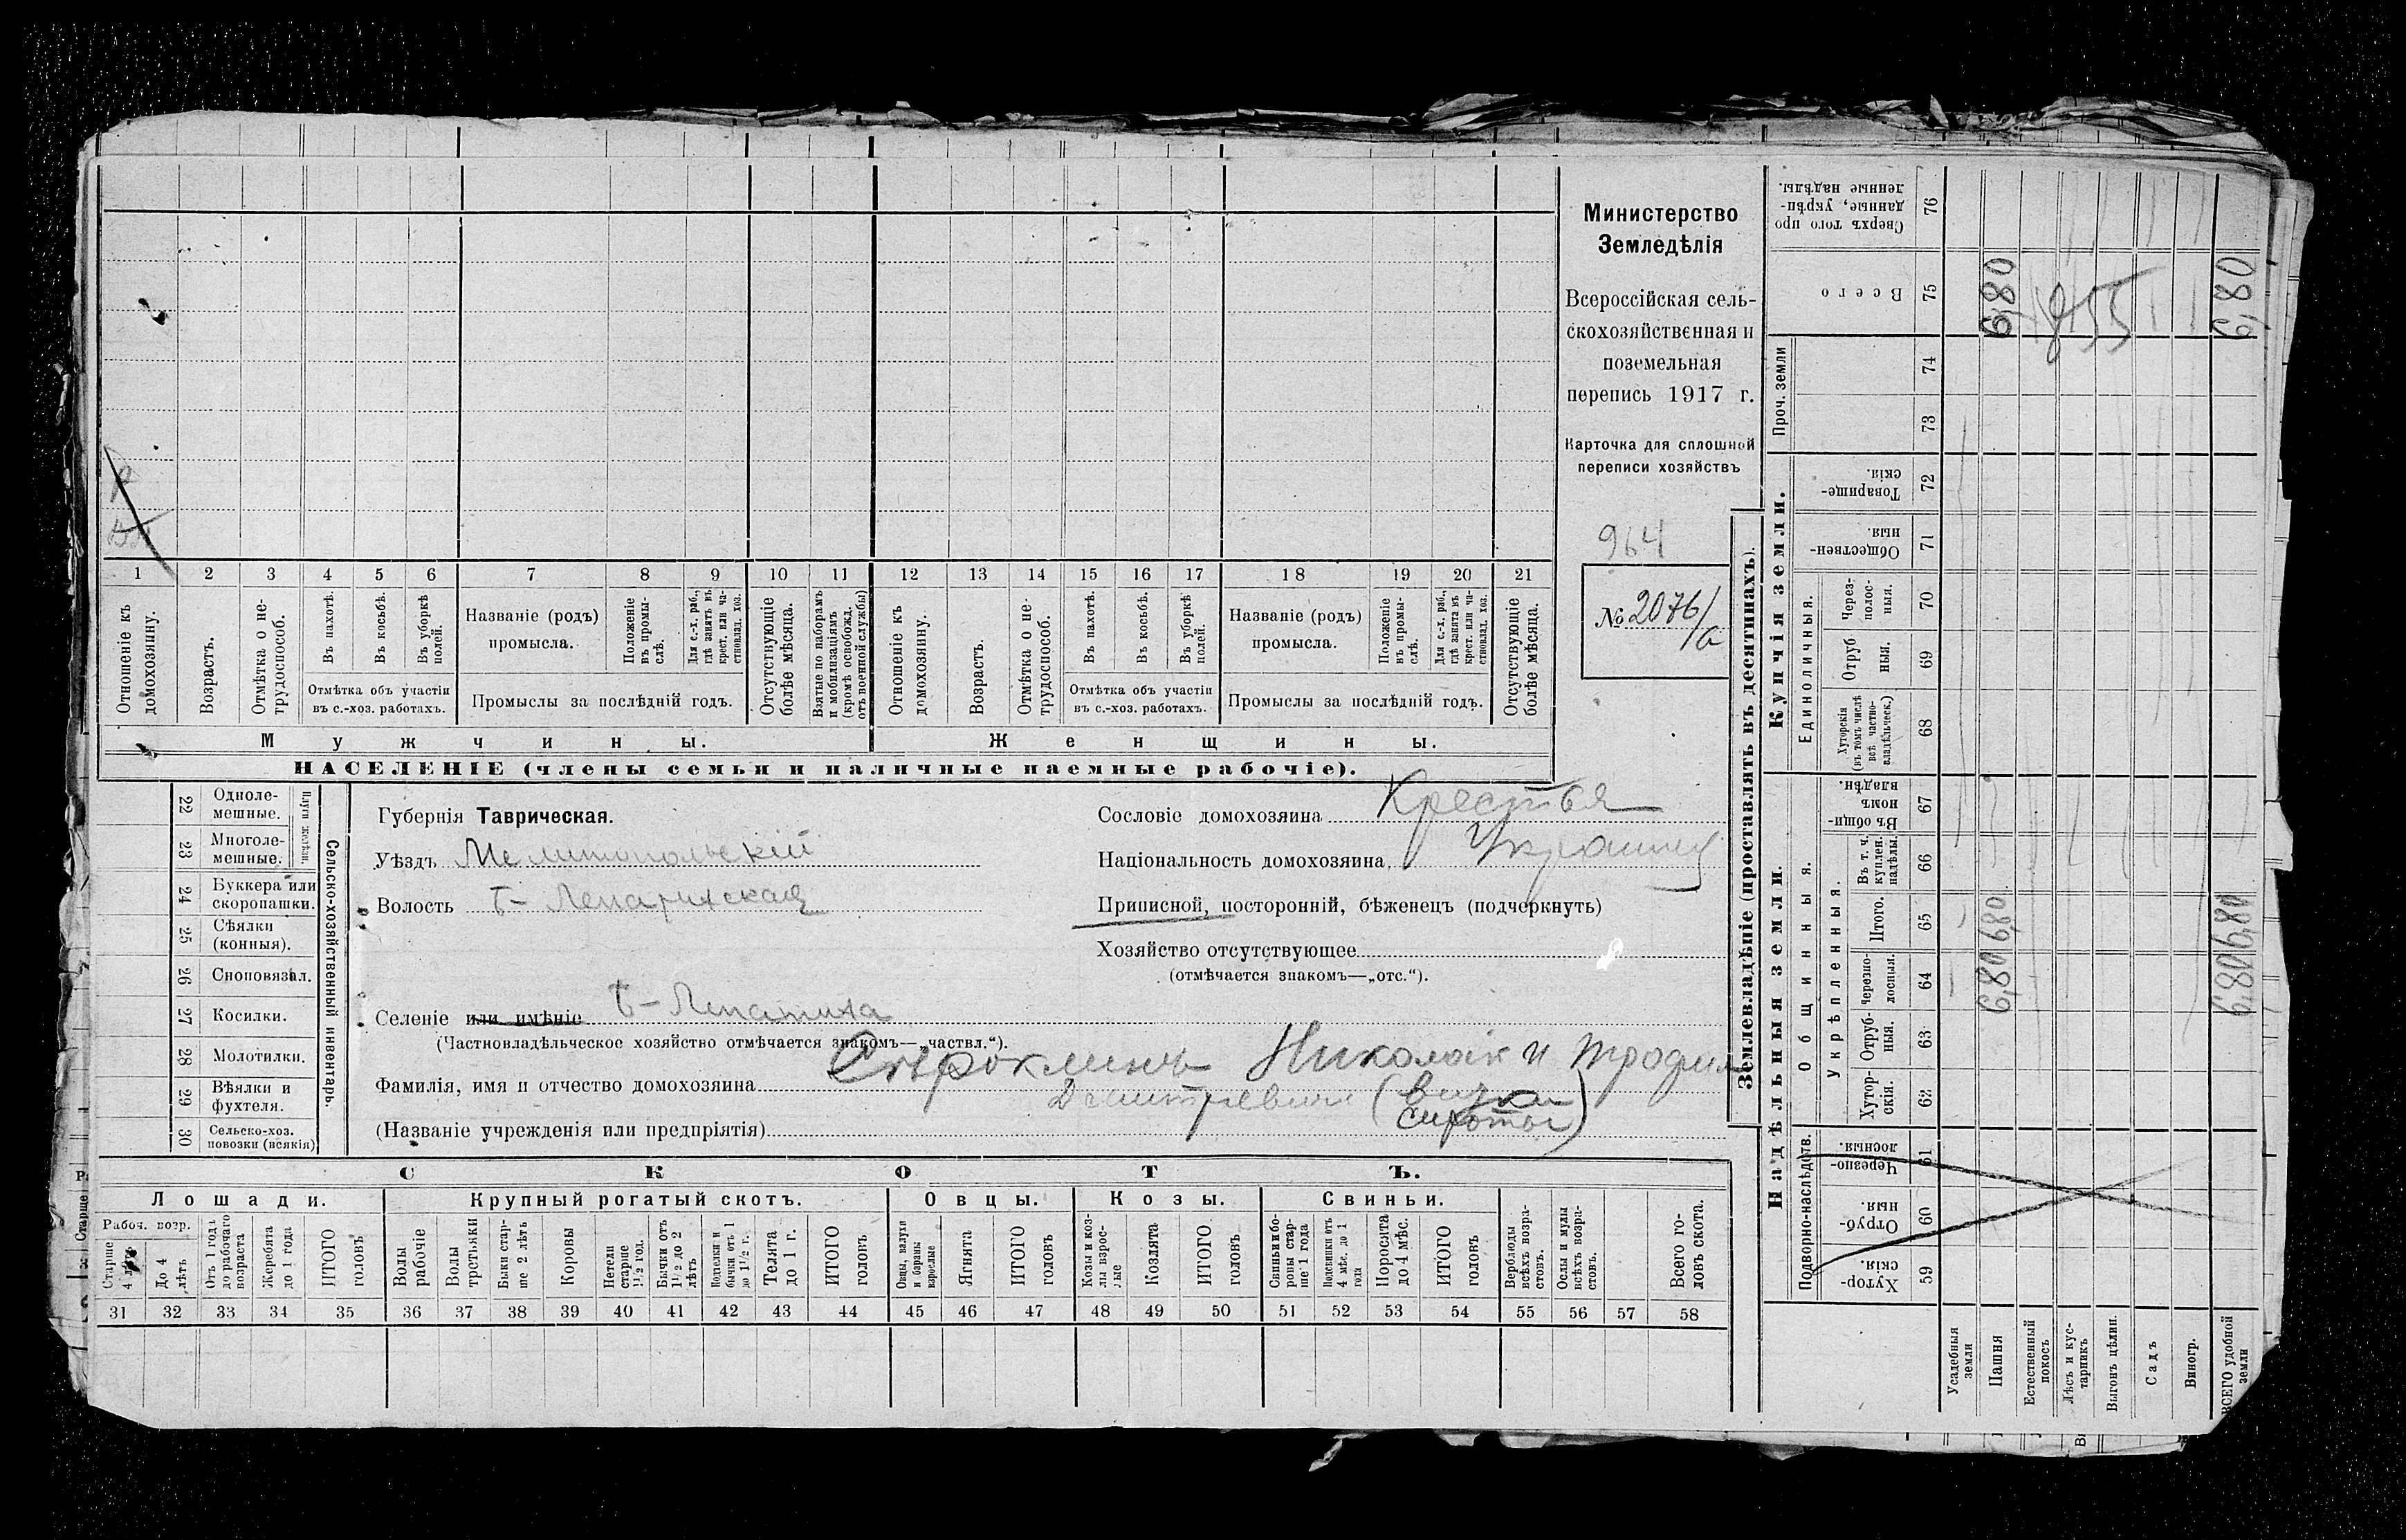 Министерство
Земледѣлія
Всероссійская сель-
скохозяйственная и
поземельная
перепись 1917 г.
Карточка для сплошной
переписи хозяйствъ
964
№ 2076/а
1 2 3 4 5 6 7 8 9 10 11 12 13 14 15 16 17 18 19 20 21
Отношеніе къ домохозяину.
Возрастъ.
Отмѣтка о не-трудоспособ.
Въ пахотѣ.
Въ косьбѣ.
Въ уборкѣ полей.
Отмѣтка объ участіи
въ с.-хоз. работахъ.
Названіе (родъ)
промысла.
Положеніе въ промы-слѣ.
Для с.-х. раб., гдѣ занятъ въ крест. или ча-стновлад. хоз.
Промыслы за послѣдній годъ.
Отсутствующіе болѣе мѣсяца.
Взятые по наборамъ и мобилизаціямъ (кромѣ освобожд. отъ военной службы)
Отношеніе къ домохозяину.
Возрастъ.
Отмѣтка о не-трудоспособ.
Въ пахотѣ.
Въ косьбѣ.
Въ уборкѣ полей.
Отмѣтка объ участіи
въ с.-хоз. работахъ.
Названіе (родъ)
промысла.
Положеніе въ промы-слѣ.
Для с.-х. раб., гдѣ занята въ крест. или ча-стновлад. хоз.
Промыслы за послѣдній годъ.
Отсутствующіе болѣе мѣсяца.
Мужчины.
Женщины.
НАСЕЛЕНІЕ (члены семьи и наличные наемные рабочіе).
Сельско-хозяйственный инвентарь.
Плуги желѣзн.
22 Одноле-мешные.
23 Многоле-мешные.
24 Буккера или скоропашки.
25 Сѣялки (конныя).
26 Сноповязал.
27 Косилки.
28 Молотилки.
29 Вѣялки и фухтеля.
30 Сельско-хоз. повозки (всякія)
Губернія Таврическая.
Уѣздъ Мелитопольскій
Волость Б-Лепатихская
Селеніе или имѣніе Б-Лепатиха
(Частновладѣльческое хозяйство отмѣчается знакомъ—„частвл.“).
Фамилія, имя и отчество домохозяина Николай и Трофим
(сироты)
(Названіе учрежденія или предпріятія)
Сословіе домохозяина Крестья
Національность домохозяина Украинец
Приписной, посторонній, бѣженецъ (подчеркнуть)
Хозяйство отсутствующее
(отмѣчается знакомъ—„отс.“).
СКОТЪ.
Лошади.
Крупный рогатый скотъ.
Овцы.
Козы.
Свиньи.
Рабоч. возр.
Старше 4 лѣтъ
До 4 лѣтъ
Отъ 1 года до рабочаго возраста
Жеребята до 1 года
ИТОГО головъ
Волы рабочіе
Волы третьяки
Быки стар-ше 2 лѣтъ
Коровы
Нетели старше 1½ год.
Бычки отъ 1½ до 2 лѣтъ
Подтелки и бычки отъ 1 до 1½ г.
Телята до 1 г.
ИТОГО головъ
Овцы, валухи и бараны взрослые
Ягнята
ИТОГО головъ
Козы и коз-лы взрос-лые
Козлята
ИТОГО головъ
Свиньи и бо-ровы стар-ше 1 года
Подсвинки отъ 4 мѣс. до 1 года
Поросята до 4 мѣс.
ИТОГО головъ
Верблюды всѣхъ возра-стовъ.
Ослы и мулы всѣхъ возра-стовъ.
Всего го-ловъ скота.
31 32 33 34 35 36 37 38 39 40 41 42 43 44 45 46 47 48 49 50 51 52 53 54 55 56 57 58
Землевладѣніе (проставлять въ десятинахъ).
Надѣльныя земли.
Купчія земли.
Проч. земли
Подворно-наслѣдств.
Общинныя.
Укрѣпленныя.
Единоличныя.
Сверхъ того про-данные, укрѣп-ленные надѣлы. 76
Всего 75
74
73
Товарище-скія. 72
Обществен-ныя. 71
Через-полос-ныя. 70
Отруб ныя. 69
Хуторскія (въ томъ числѣ всѣ частно-владѣльческ.) 68
Въ общи-номъ владѣн. 67
Въ т. ч. куплен. надѣлы. 66
Итого. 65
Черезпо-лосныя. 64
Отруб-ныя. 63
Хутор-скія. 62
Черезпо-лосныя. 61
Отруб-ныя. 60
Хутор-скія. 59
Усадебныя земли
Пашня 6,80 6,80 6,80
Естественный покосъ
Лѣсъ и кус-тарникъ
Выгонъ цѣлин.
Садъ
Виногр.
ВСЕГО удобной земли 6,80 6,80 6,80